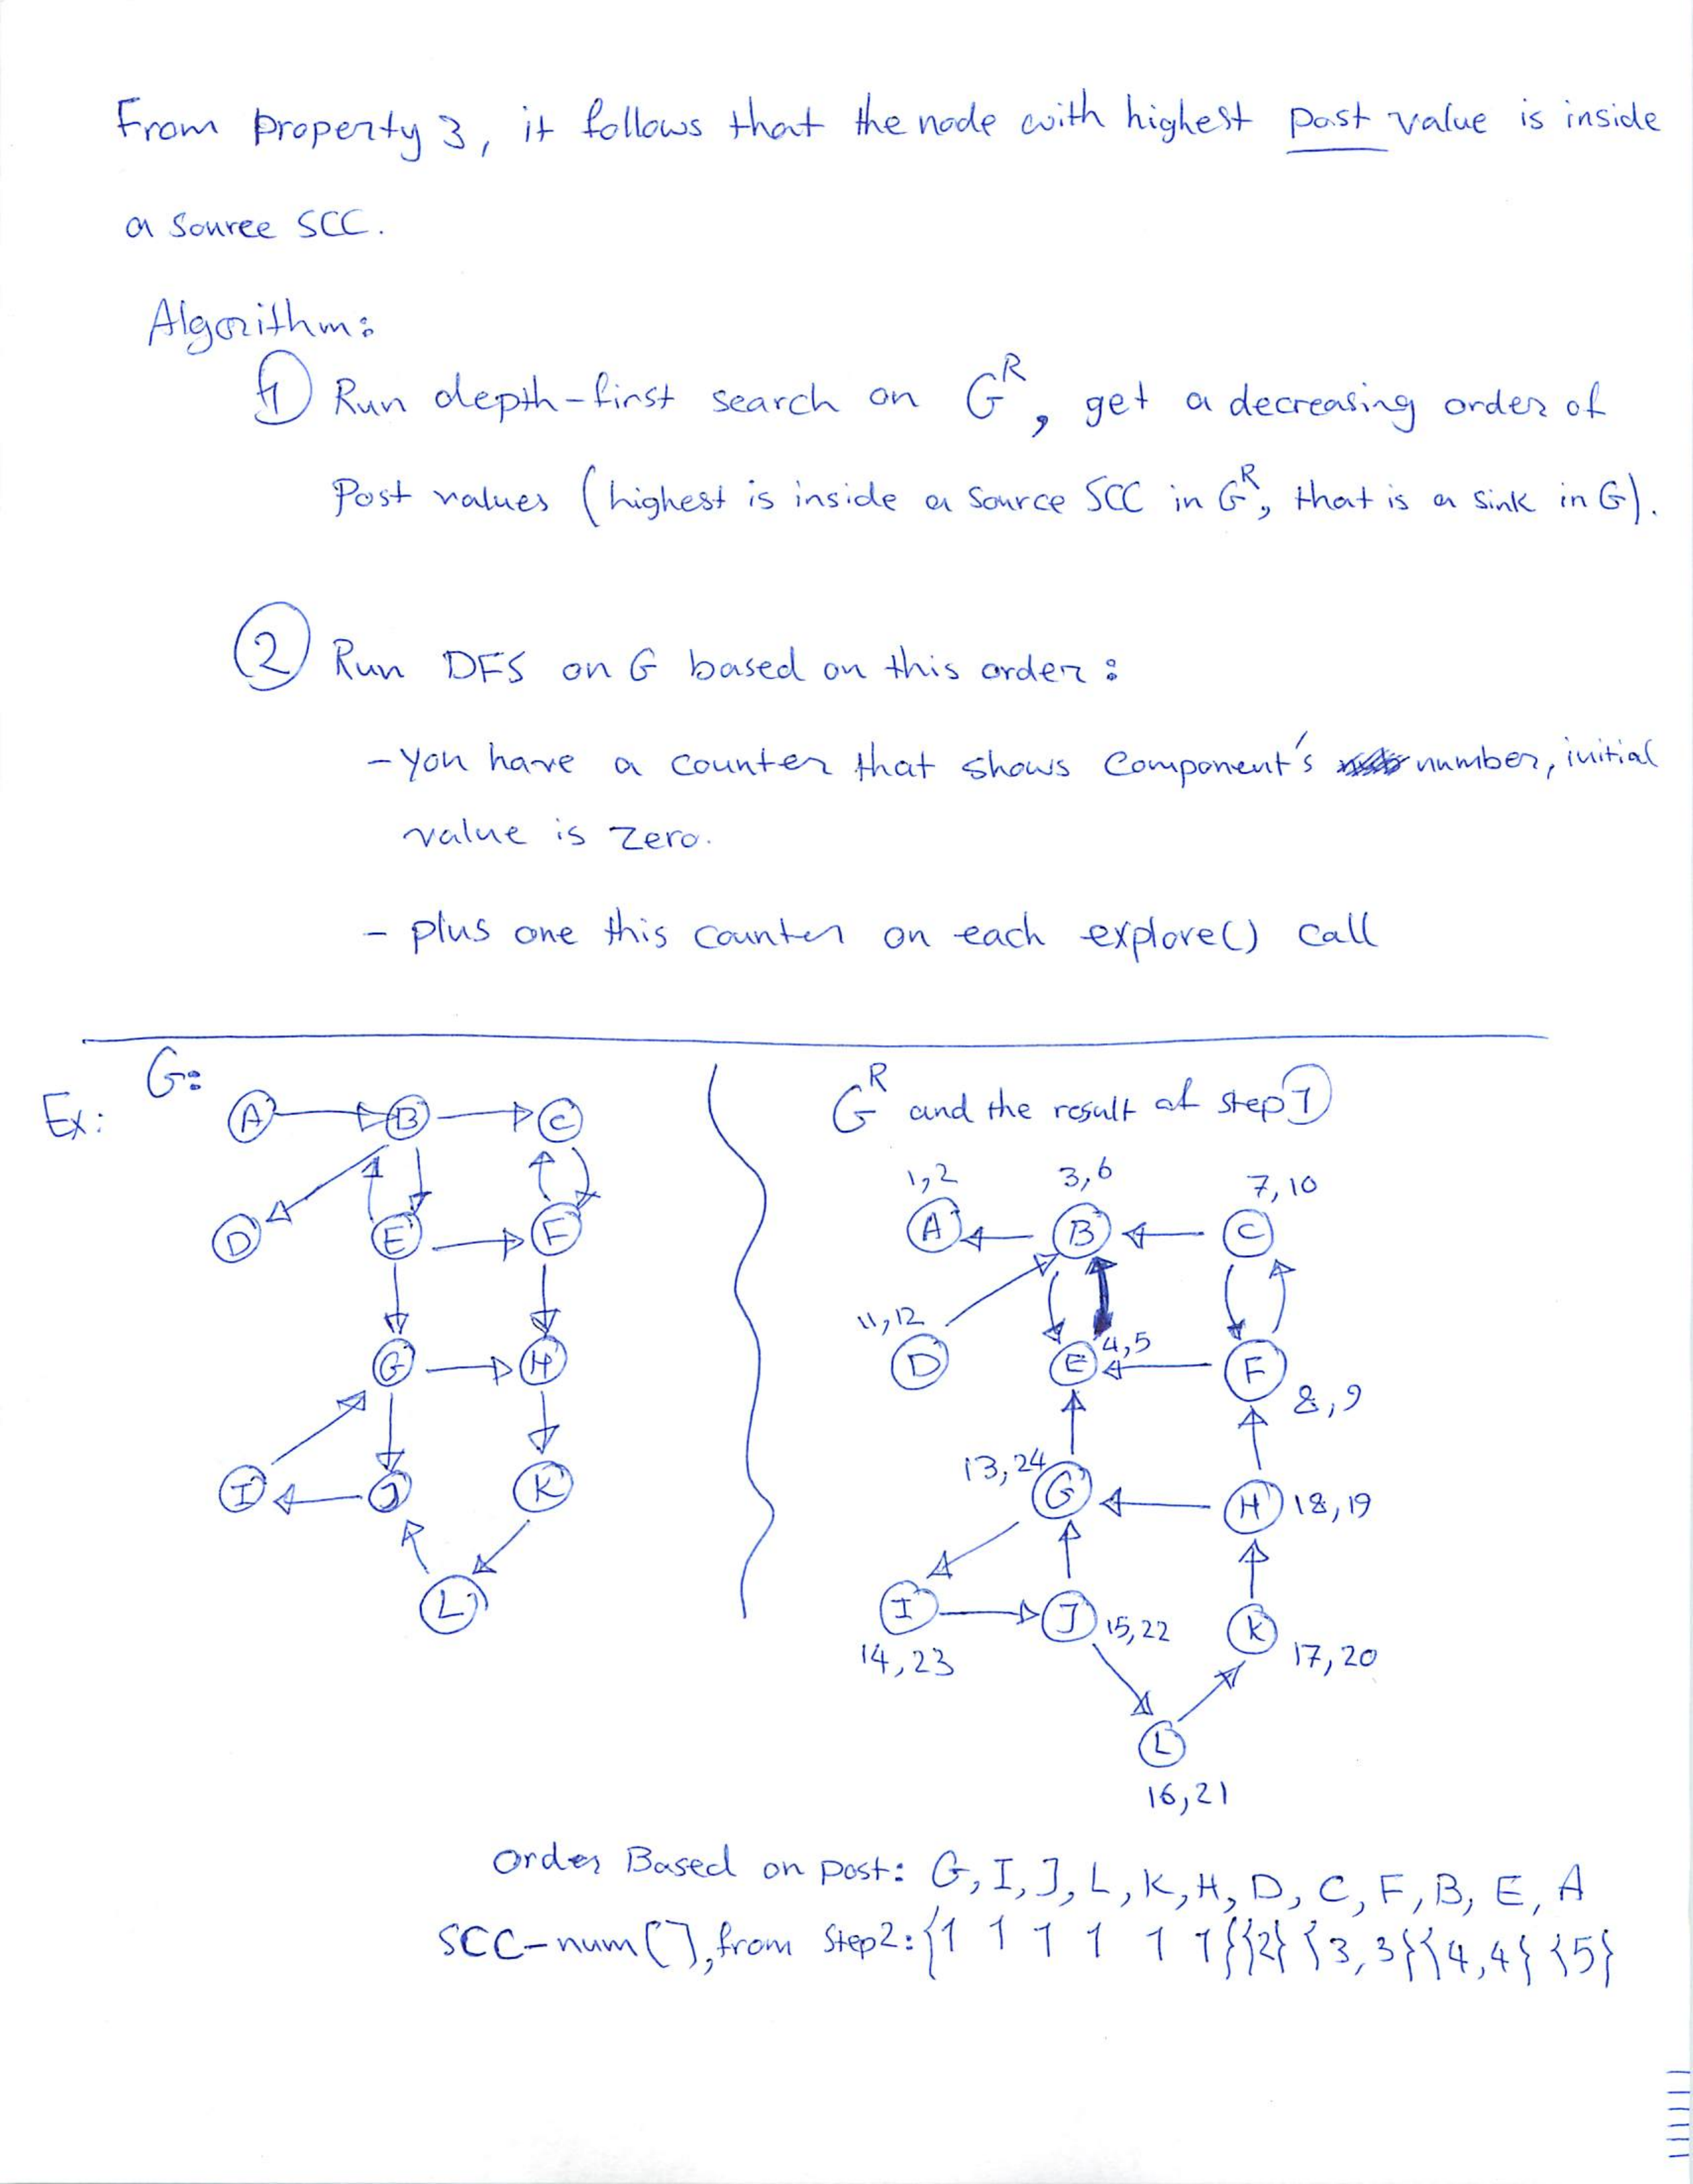 From property 3, it follows that the node with highest post value is inside
a source SCC.
Algorithm:
① Run depth-first search on G^R, get a decreasing order of
Post values (highest is inside a source SCC in G^R, that is a sink in G).
② Run DFS on G based on this order:
- you have a counter that shows component's number, initial
value is zero.
- plus one this counter on each explore() call
Ex: G:
A B C
D E F
G H
I J K
L
G^R and the result of step ①
1,2 3,6 7,10
A B C
11,12
D E 4,5 F 8,9
13,24 G H 18,19
I J 15,22 K
14,23 17,20
L
16,21
Order Based on post: G, I, J, L, K, H, D, C, F, B, E, A
SCC-num[], from Step2: {1 1 1 1 1 1}{2} {3,3}{4,4} {5}